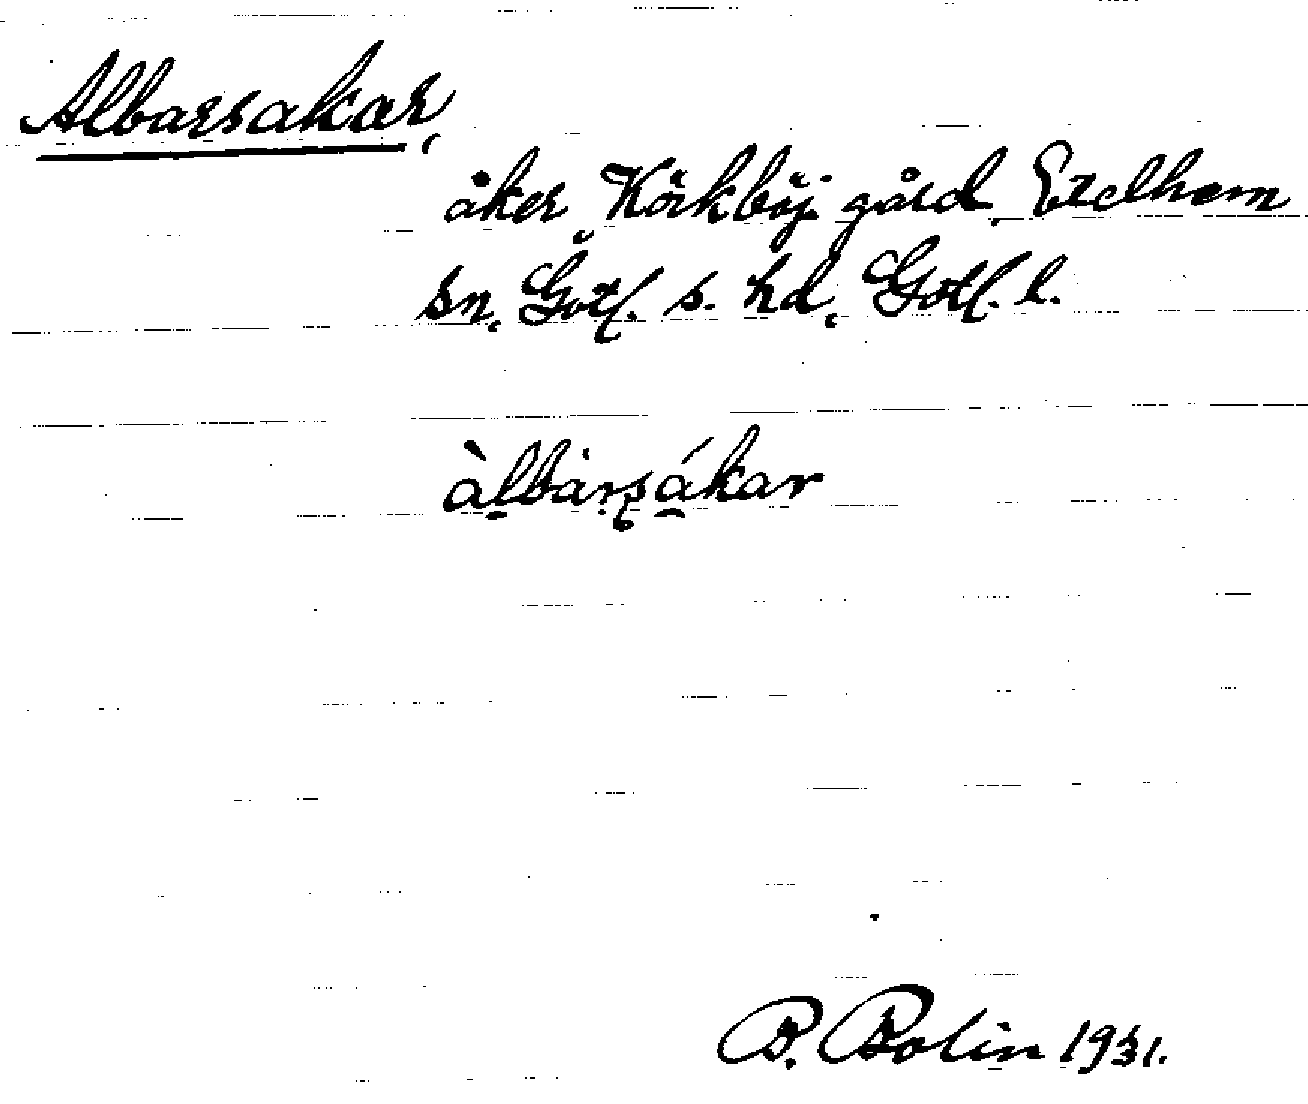 Albarsakar,
åker Körkböj gård, Etelhem
sn, Gotl. s. hd, Gotl. l.
àlbàrsákar
B. Bolin 1931.